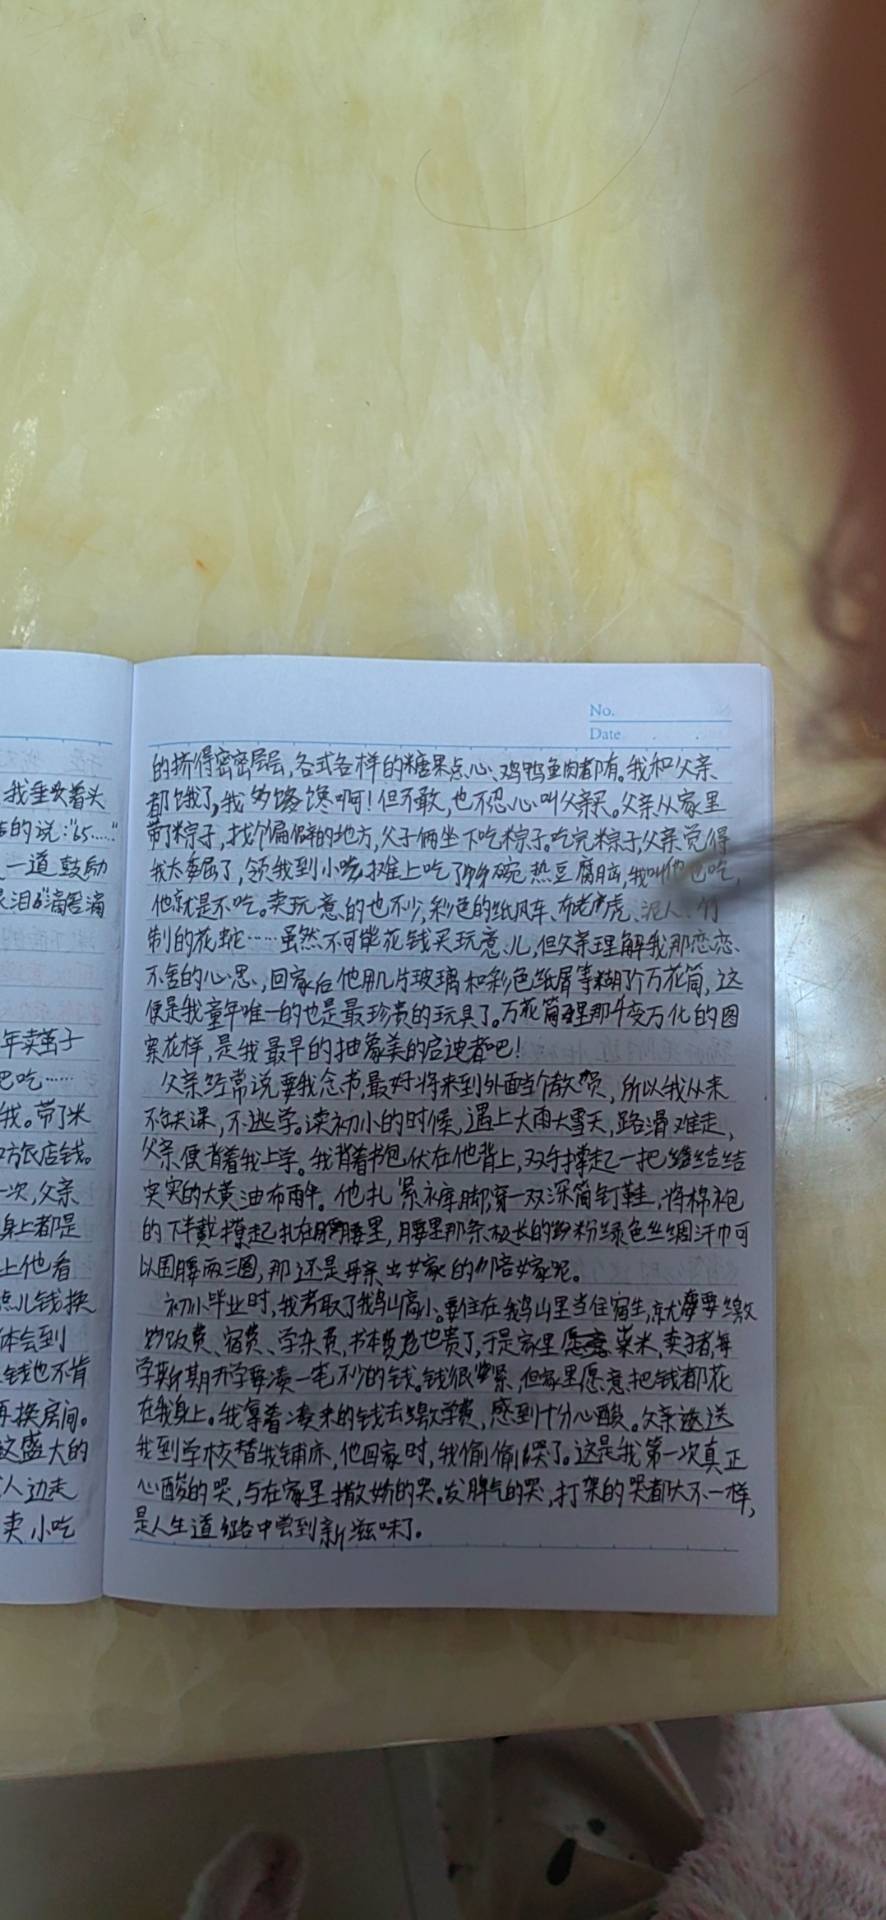 我垂头着头
的说：“65……”
一道鼓励
泪水滴答滴
年卖茧子
吧吃……
我。带了米
旅店钱。
一次，父亲
身上都是
上他看
点儿钱换
体会到
钱也不肯
再换房间。
这盛大的
人边走
卖小吃
No.
Date
的挤得密密层层，各式各样的糖果点心、鸡鸭鱼肉都有。我和父亲
都饿了，我多馋馋啊！但不敢，也不忍心叫父亲买。父亲从家里
带了粽子，找个偏僻的地方，父子俩坐下吃粽子。吃完粽子，父亲觉得
我太委屈了，领我到小吃摊上吃了碗热豆腐脑，我叫他也吃，
他就是不吃。卖玩意的也不少，彩色的纸风车、布老虎、泥人、竹
制的花蛇……虽然不可能花钱买玩意儿，但父亲理解我那恋恋
不舍的心思，回家后他用几片玻璃和彩色纸屑等糊了个万花筒，这
便是我童年唯一的也是最珍贵的玩具了。万花筒里那千变万化的图
案花样，是我最早的抽象美的启迪者吧！
父亲经常说要我念书，最好将来到外面当个教员，所以我从来
不缺课，不逃学。读初小的时候，遇上大雨大雪天，路滑难走，
父亲便背着我上学。我背着书包伏在他背上，双手撑起一把结结
实实的大黄油布雨伞。他扎紧裤脚，穿一双深筒钉鞋，将棉袍
的下半截撩起扎在腰里，腰里那条极长的粉绿色丝绸汗巾可
以围腰两三圈，那还是母亲出嫁的陪嫁呢。
初小毕业时，我考取了鹅山高小。要住在鹅山里当住宿生，就要缴
饭费、宿费、学杂费，书本费也贵了，于是家里粜米，卖猪，每
学期开学要凑一笔不少的钱。钱很紧，但家里愿意把钱都花
在我身上。我拿着凑来的钱去缴学费，感到十分心酸。父亲送
我到学校替我铺床，他回家时，我偷偷哭了。这是我第一次真正
心酸的哭，与在家里撒娇的哭。发脾气的哭，打架的哭都大不一样，
是人生道路中尝到新滋味了。